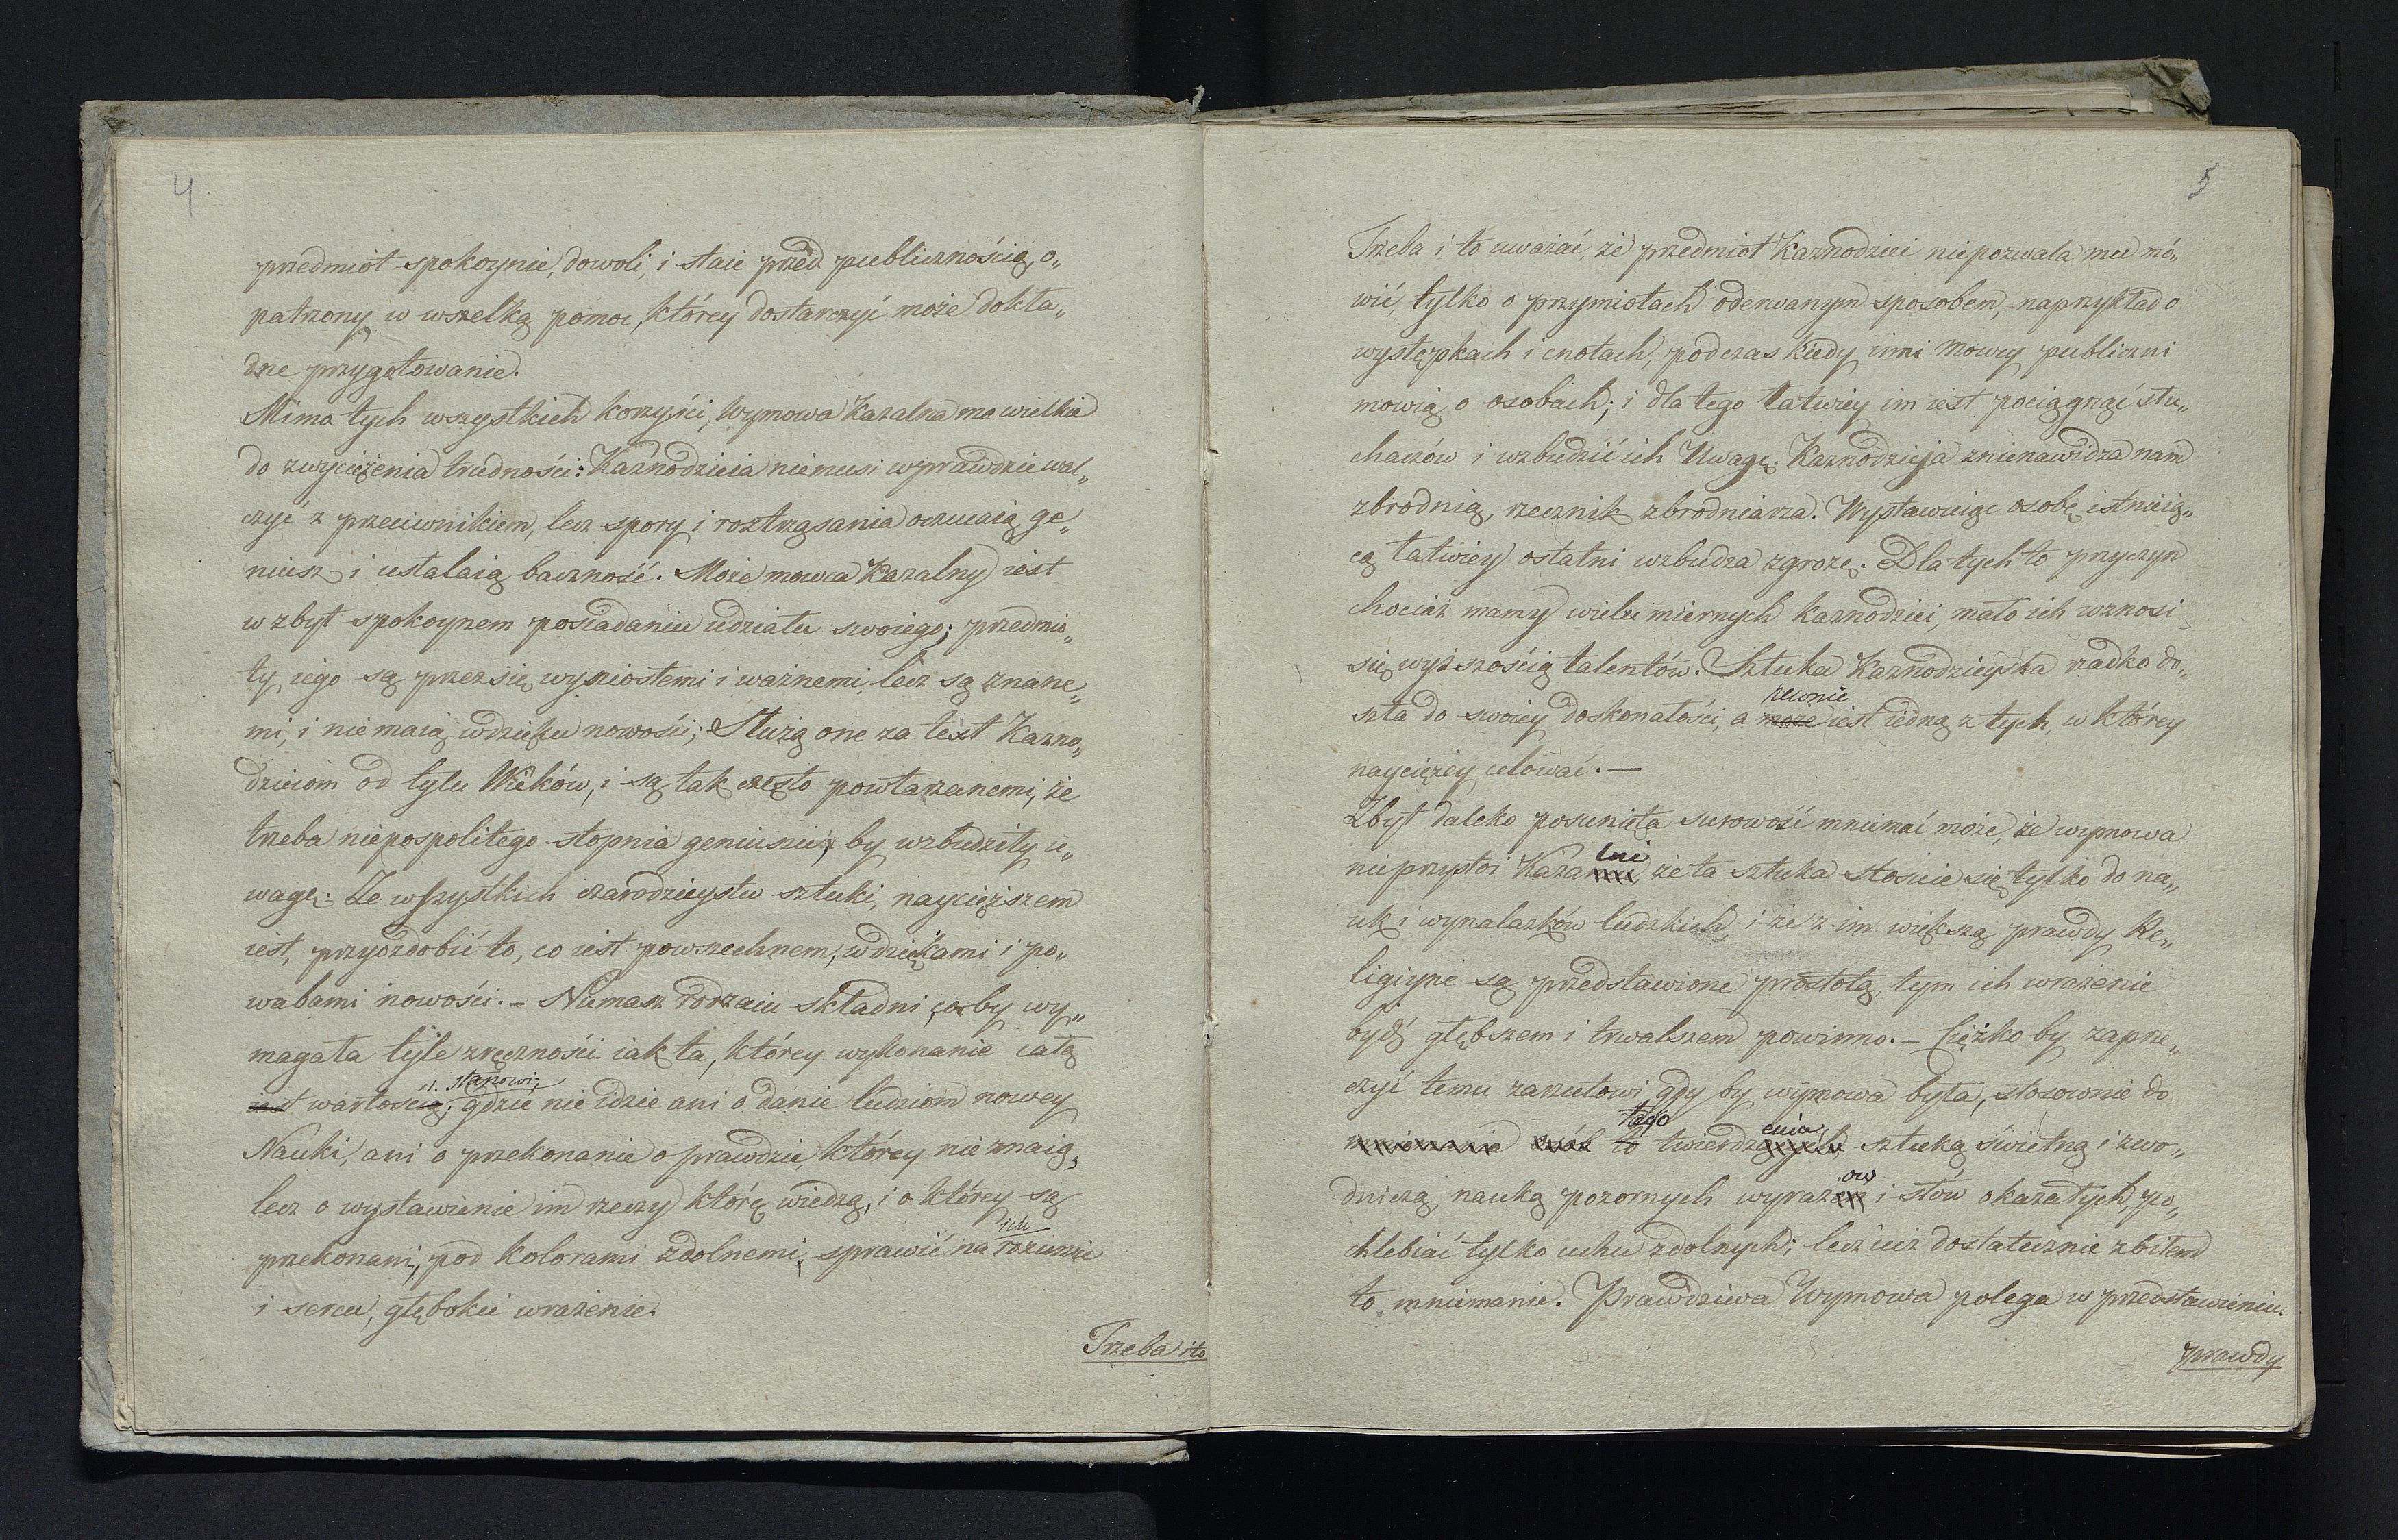 4.
przedmiot spokoynie, dowoli, i staie przed publicznością, o„
patrzony w wszelką pomoc, którey dostarczyć może dokła„
dne przygotowanie.
Mimo tych wszystkich korzyści, wymowa Kazalna ma wielkie
do zwyciężenia trudności: Kaznodzieia niemusi wprawdzie wal„
czyć z przeciwnikiem, lecz spory i roztrząsania ocucaią ge„
niusz i ustalaią baczność. Może mowca Kazalny iest
w zbyt spokoynem posiadaniu udziału swoiego; przedmio„
ty iego są przez się wyniosłemi i ważnemi, lecz są znane„
mi, i nie maią wdzięku nowości; Służą one za text Kazno„
dzieiom od tylu Wieków, i są tak często powtarzanemi, że
trzeba niepospolitego stopnia geniuszu, by wzbudziły u„
wagę. Ze wszystkich czarodzieystw sztuki, naycięższem
iest, przyozdobić to, co iest powszechnem, wdziękami i po„
wabami nowości. – Niemasz rodzaiu składni, coby wy„
magała tyle zręczności iak ta, którey wykonanie całą
stanowi
iest wartością; gdzie nie idzie ani o danie ludziom nowey
Nauki, ani o przekonanie o prawdzie, którey nie znaią,
lecz o wystawienie im rzeczy którę wiedzą, i o którey są
ich
przekonani, pod kolorami zdolnemi, sprawić na rozumie
i sercu, głębokie wrażenie.
Trzeba ito
5
Trzeba i to uważać, że przedmiot Kaznodziei niepozwala mu mó„
wić, tylko o przymiotach oderwanym sposobem, naprzykład o
występkach i cnotach, podczas kiedy inni Mowcy publiczni
mowią o osobach; i dla tego łatwiey im iest pociągnąć słu„
chaczów i wzbudzić ich Uwagę. Kaznodzieja znienawidza nam
zbrodnią, rzecznik zbrodniarza. Wystawuiąc osobę istnieią„
cą łatwiey ostatni wzbudza zgrozę. Dla tych to przyczyn
chociaż mamy wielu miernych kaznodziei, mało ich wznosi
się wyższością talentów. Sztuka Kaznodzieyska rzadko do„
pewnie
szła do swoiey doskonałości, a może iest iedną z tych, w którey
nayciężey celować. —
Zbyt daleko posunięta surowość mniemać może, że wymowa
lni
nieprzystoi Kazaniu, że ta sztuka stosuie się tylko do na„
uk i wynalazków ludzkich, i że z im większą prawdy Re„
ligiyne są przedstawione prostotą, tym ich wrażenie
bydź głębszem i trwalszem powinno. – Ciężko by zaprze„
czyć temu zarzutowi, gdy by wymowa była, stosownie do
tego enia
mniemania to twierdzących, sztuką świetną i zwo„
ow
dniczą, nauką pozornych wyrazów i słów okazałych, po„
chlebiać tylko uchu zdolnych; lecz iuż dostatecznie zbitem
to mniemanie. Prawdziwa Wymowa polega w przedstawieniu.
prawdy